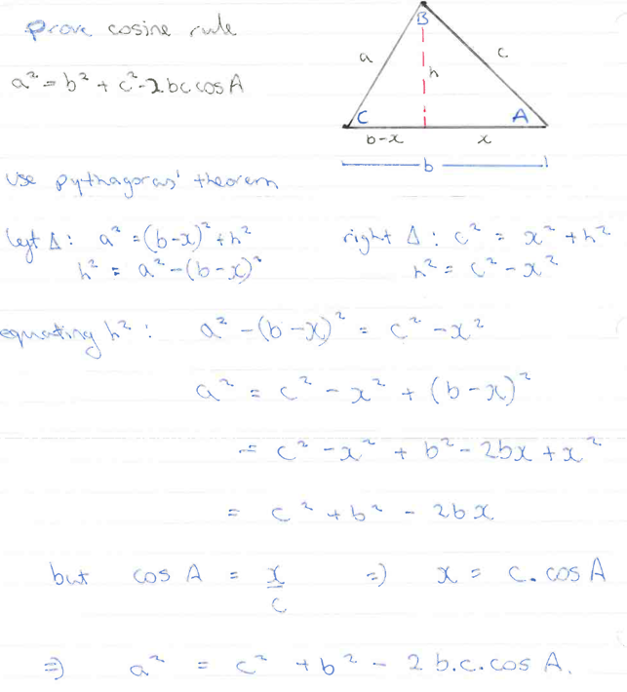 prove cosine rule
a² = b² + c² - 2bc cos A
B
a
h
c
C
A
b-x
x
b
use pythagoras' theorem
left Δ: a² = (b-x)² + h²
h² = a² - (b-x)²
right Δ: c² = x² + h²
h² = c² - x²
equating h²: a² - (b-x)² = c² - x²
a² = c² - x² + (b-x)²
= c² - x² + b² - 2bx + x²
= c² + b² - 2bx
but cos A = x/c => x = c. cos A
=> a² = c² + b² - 2b.c.cos A.